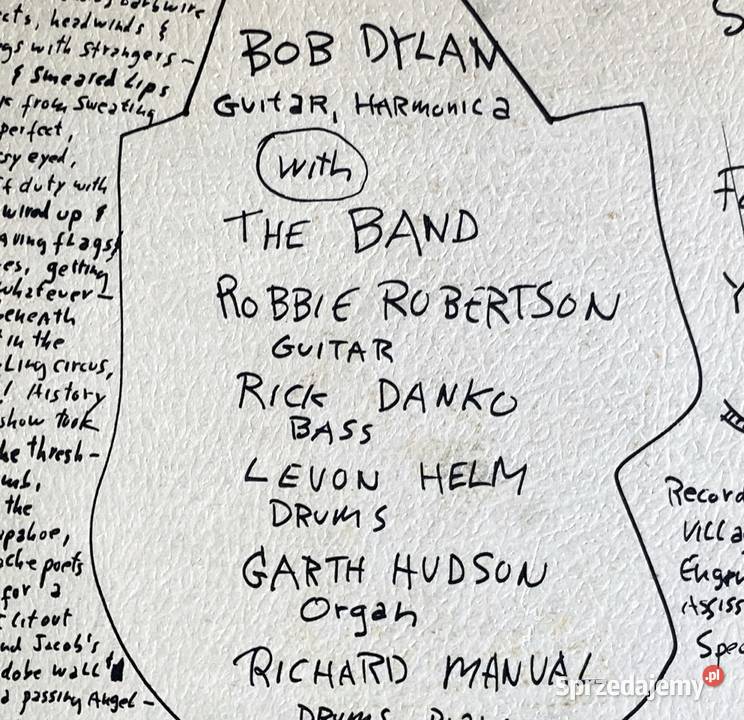 cts, headwinds &
gs with strangers-
& smeared Lips
from sweating
perfect,
sy eyed,
duty with
wired up &
aving flags,
es, getting
whatever-
eneath
in the
Ling circus,
! History
show took
he thresh-
the
ache poets
for a
Lit out
nd Jacob's
dobe wall
a passing Angel-
BOB DYLAN
GuitaR, HARMONICa
with
THE BAND
RoBBIE ROBERTSON
GUITAR
RICK DANKO
BASS
LEVON HELM
DRUMS
GARTH HUDSON
Organ
RICHARD MANUAL
DRUMS
S
Fo
Y
Record
VILLa
Engin
Assis
Spec
Sprzedajemy.pl